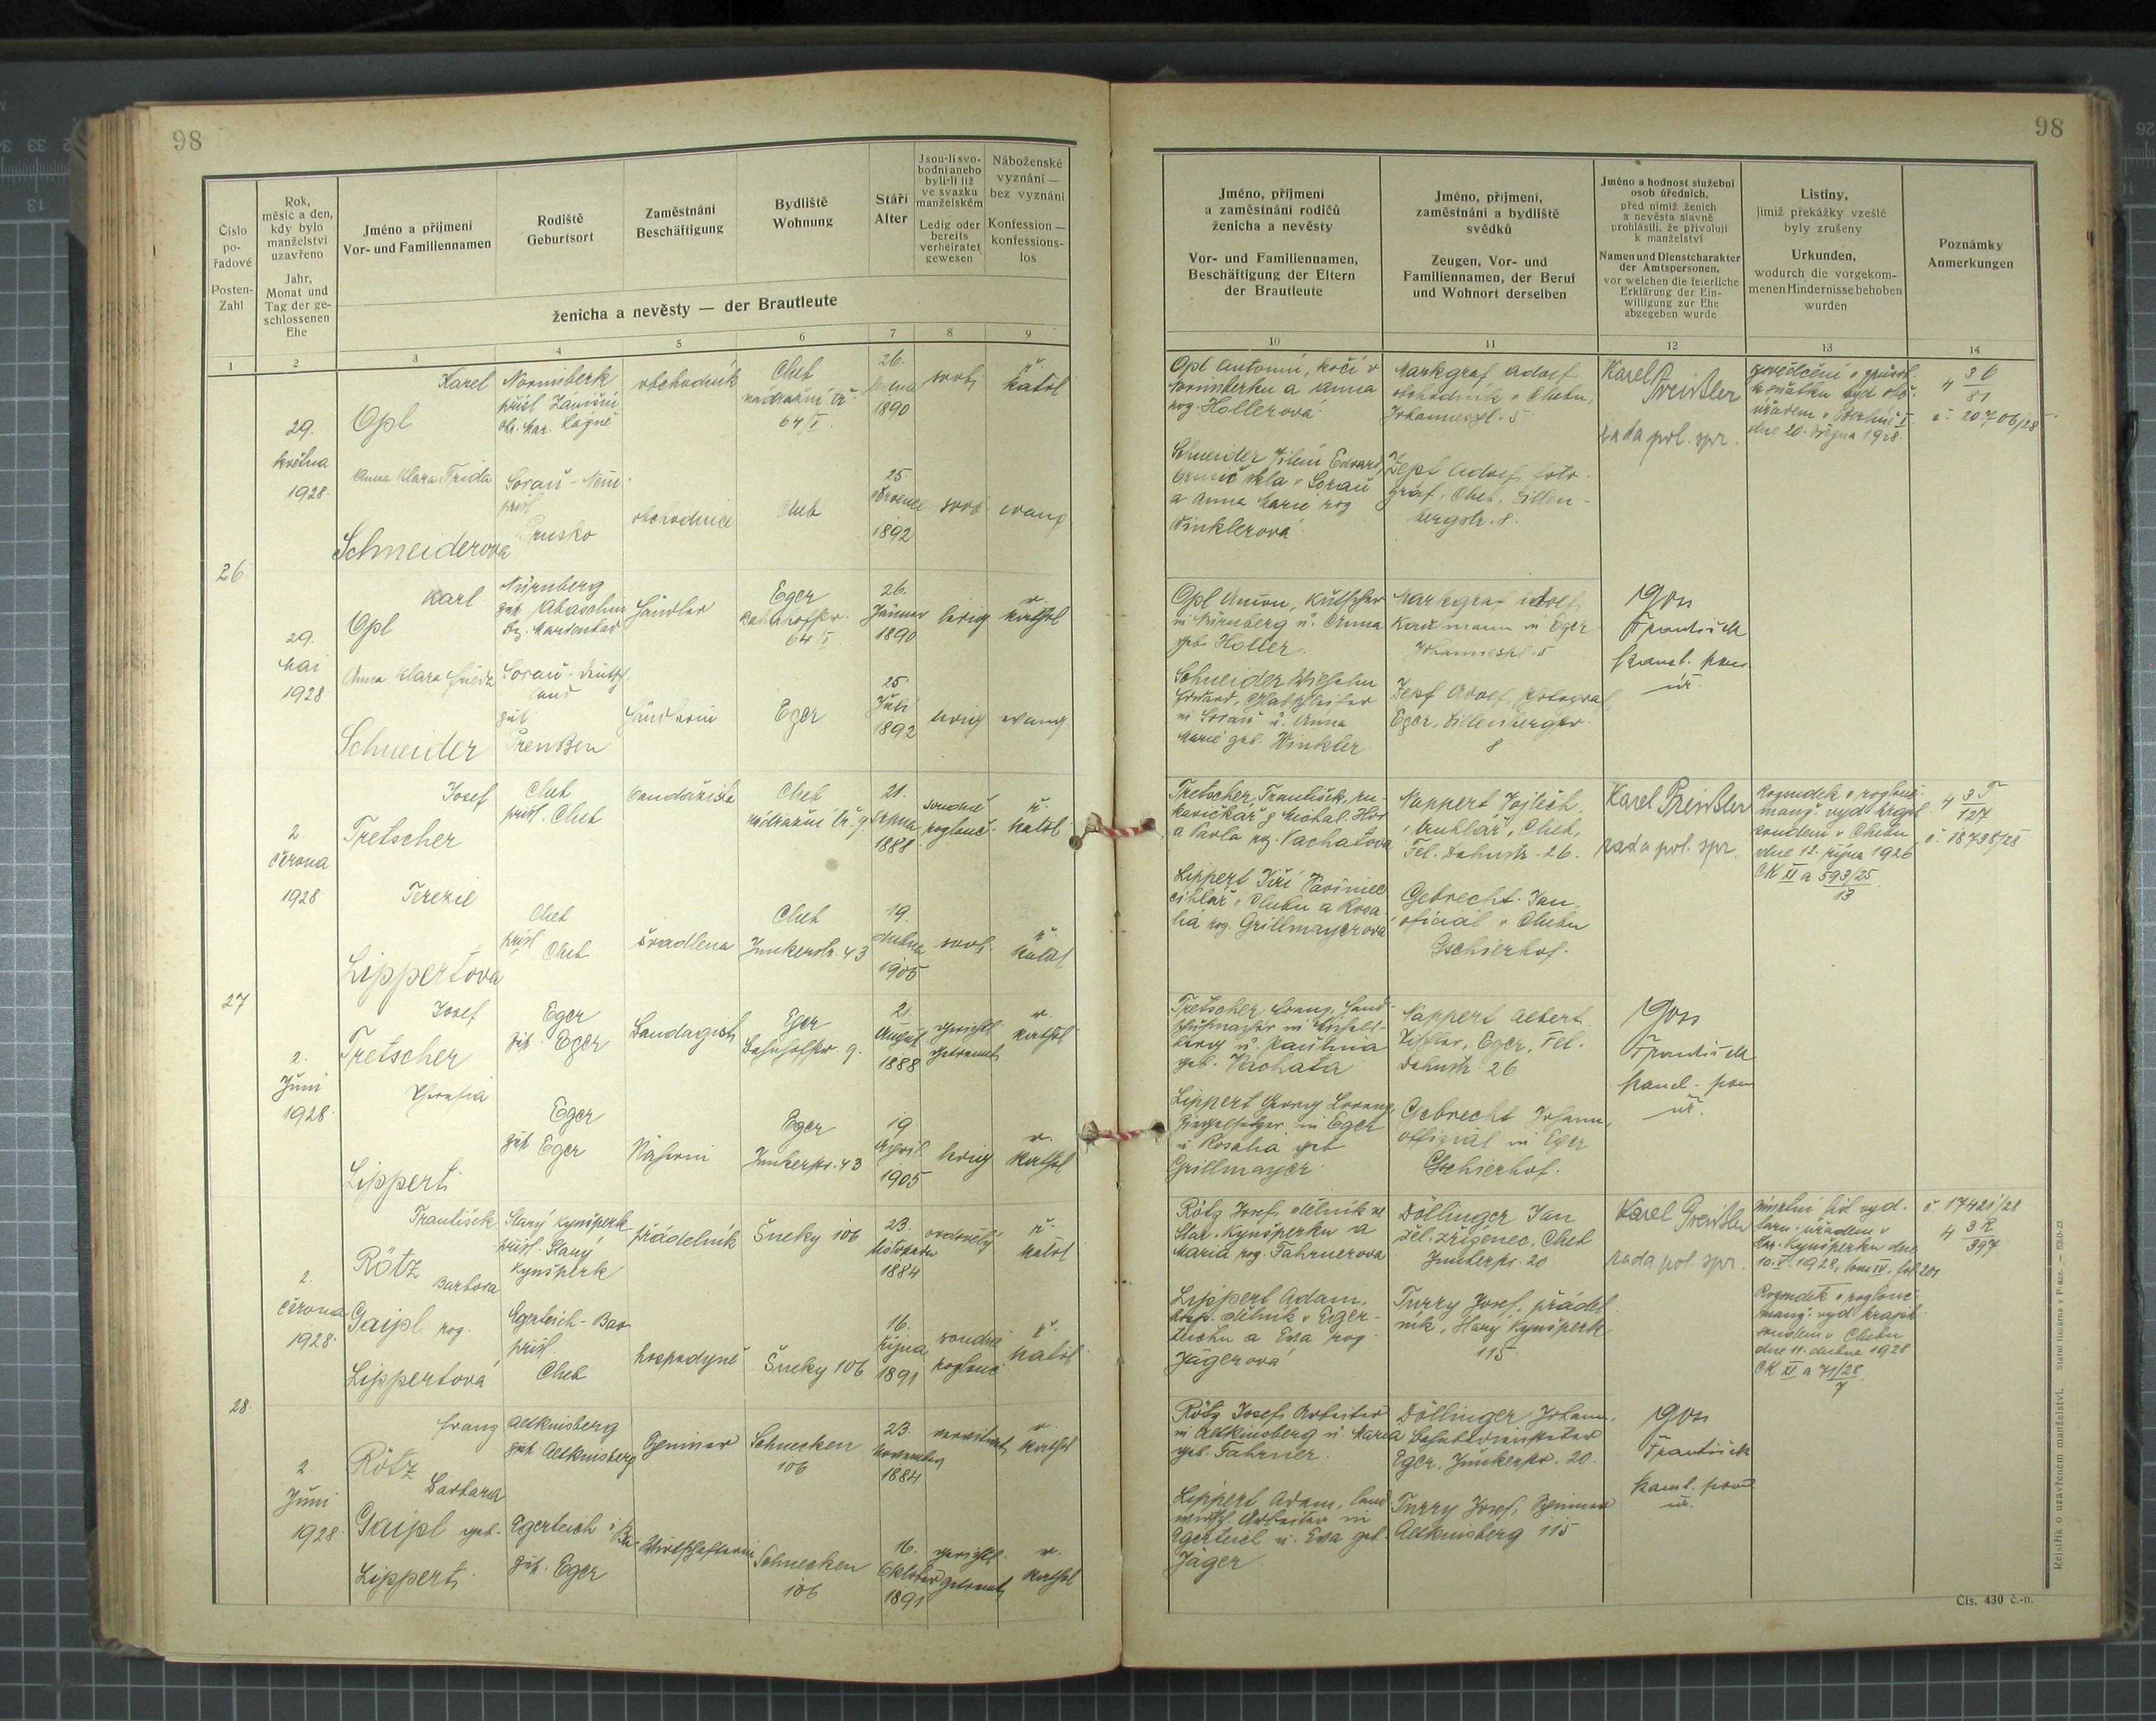 98
98
Číslo
po-
řadové
Posten-
Zahl
Rok,
měsíc a den,
kdy bylo
manželství
uzavřeno
Jahr,
Monat und
Tag der ge-
schlossenen
Ehe
Jméno a příjmení
Vor- und Familiennamen
Rodiště
Geburtsort
Zaměstnání
Beschäftigung
Bydliště
Wohnung
Stáří
Alter
Jsou-li svo-
bodni anebo
byli-li již
ve svazku
manželském
Ledig oder
bereits
verheiratet
gewesen
Náboženské
vyznání —
bez vyznání
Konfession —
konfessions-
los
ženicha a nevěsty — der Brautleute
1 2 3 4 5 6 7 8 9
Jméno, příjmení
a zaměstnání rodičů
ženicha a nevěsty
Vor- und Familiennamen,
Beschäftigung der Eltern
der Brautleute
Jméno, příjmení,
zaměstnání a bydliště
svědků
Zeugen, Vor- und
Familiennamen, der Beruf
und Wohnort derselben
Jméno a hodnost služební
osob úředních,
před nimiž ženich
a nevěsta slavně
prohlásili, že přivolují
k manželství
Namen und Dienstcharakter
der Amtspersonen,
vor welchen die feierliche
Erklärung der Ein-
willigung zur Ehe
abgegeben wurde
Listiny,
jimiž překážky vzešlé
byly zrušeny
Urkunden,
wodurch die vorgekom-
menen Hindernisse behoben
wurden
Poznámky
Anmerkungen
10 11 12 13 14
26
29.
května
1928
Karel
Opl
Norimberk
obchodník
Cheb
64/I
26.
1890
svob.
ř.
katol
Anna Klara Frida
Schneiderova
Sorau - Něm.
přísl
Prusko
obchodnice
Cheb
25
července
1892
svob
evang
Opl Antonín, kočí v
Norimberku a Anna
roz. Hollerová
Markgraf Adolf
obchodník v Chebu,
Johannespl. 5
Karel Preissler
rada pol. spr.
dne 20. března 1928
č. 20706/28
Schneider Vilém Edvard,
brusič skla v Sorau
a Anna Marie roz
Winklerová
Zepf Adolf, foto-
graf, Cheb, Sillen-
bergstr. 8.
29.
Mai
1928
Karl
Opl
Nürnberg
Händler
Eger
64 I.
26.
Jänner
1890
ledig
r.
kathol
Anna Klara Frieda
Schneider
Sorau - Deutsch-
land
zust
Preussen
Händlerin
Eger
25.
Juli
1892
ledig
evang
Opl Anton, Kutscher
in Nürnberg u. Anna
geb. Holler.
Markgraf Adolf,
Kaufmann in Eger
Johannespl. 5
František
Schneider Wilhelm
Eduard, Glasschleifer
in Sorau u. Anna
Marie geb. Winkler.
Zepf Adolf, Fotograf
Eger, Sillenbergstr.
8
27
2.
června
1928
Josef
Tretscher
Cheb
přísl. Cheb
bandažista
Cheb
nádražní tř. 9
21.
srpna
1888
soudně
rozlouč.
ř.
katol.
Terezie
Lippertova
Cheb
přísl
Cheb
švadlena
Cheb
Junkerstr. 43
19.
dubna
1905
svob.
ř.
katol
Tretscher František, ru-
kavičkář z Michal. Hor
a Pavla roz. Vachatova
Nappert Vojtěch,
truhlář, Cheb,
Fel. Dahnstr. 26.
Karel Preissler
rada pol. spr.
Rozsudek o rozlouč.
manž. vyd. krajs.
soudem v Chebu
dne 12. října 1926
CK XI a 593/25
13
č. 18798/28
Lippert Jiří Vavřinec
cihlář v Chebu a Rosa
lia roz. Grillmayerova
Gebrecht Jan,
oficiál v Chebu
Gschierhof.
2.
Juni
1928
Josef
Tretscher
Eger
zust. Eger
Bandagist
Eger
Bahnhofstr. 9.
21
August
1888
gerichtl.
getrennt
r.
kathol
Theresia
Lippert
Eger
zust Eger
Näherin
Eger
Junkerstr. 43
19
April
1905
ledig
r.
kathol
Tretscher Franz, Hand-
schuhmacher in Michels-
berg u. Paulina
geb. Vachata
Nappert Albert
Tischler, Eger, Fel.
Dahnstr. 26
František
Lippert Georg Lorenz
Ziegelsetzer in Eger
u Rosalia geb
Grillmayer
Gebrecht Johann,
Offizial in Eger
Gschierhof.
28.
2.
června
1928.
František
Rötz
Starý Kynšperk
přísl. Starý
Kynšperk
přádelník
Šneky 106
23.
listopadu
1884
ovdovělý
ř.
katol
Barbora
Gaipl roz.
Lippertová
Egerteich - Bav
přísl.
Cheb
hospodyně
Šneky 106
16.
října
1891
soudně
rozlouč
ř.
katol
Rötz Josef, dělník ve
Star. Kynšperku a
Maria roz. Fahrnerova
Döllinger Jan
žel. zřízenec, Cheb
Junkerstr. 20
Karel Preissler
rada pol. spr.
č. 17421/28
Lippert Adam,
hosp. dělník v Eger-
teichu a Eva roz.
Jägerová
Turry Josef, přádel
ník, Starý Kynšperk
115
Rozsudek o rozlouč
manž. vyd krajsk
soudem v Chebu
dne 11. dubna 1928
CK XI a 71/28
7
2.
Juni
1928.
Franz
Rötz
Altkinsberg
zust. Altkinsberg
Spinner
Schnecken
106
23.
November
1884
verwitwet
r.
kathol
Barbara
Gaipl geb.
Lippert
Egerteich
zust. Eger
Wirtschafterin
Schnecken
106
16.
Oktober
1891
gerichtl.
getrennt
r.
kathol
Rötz Josef, Arbeiter
in Altkinsberg u. Maria
geb. Fahrner.
Döllinger Johann,
Eger. Junkerstr. 20.
František
Lippert Adam, land
wirtsch Arbeiter in
Egerteich u. Eva geb.
Jäger
Turry Josef, Spinner
Altkinsberg 115
Rejstřík o uzavřeném manželství. Státní tiskárna v Praze.
Čís. 430 č.-n.